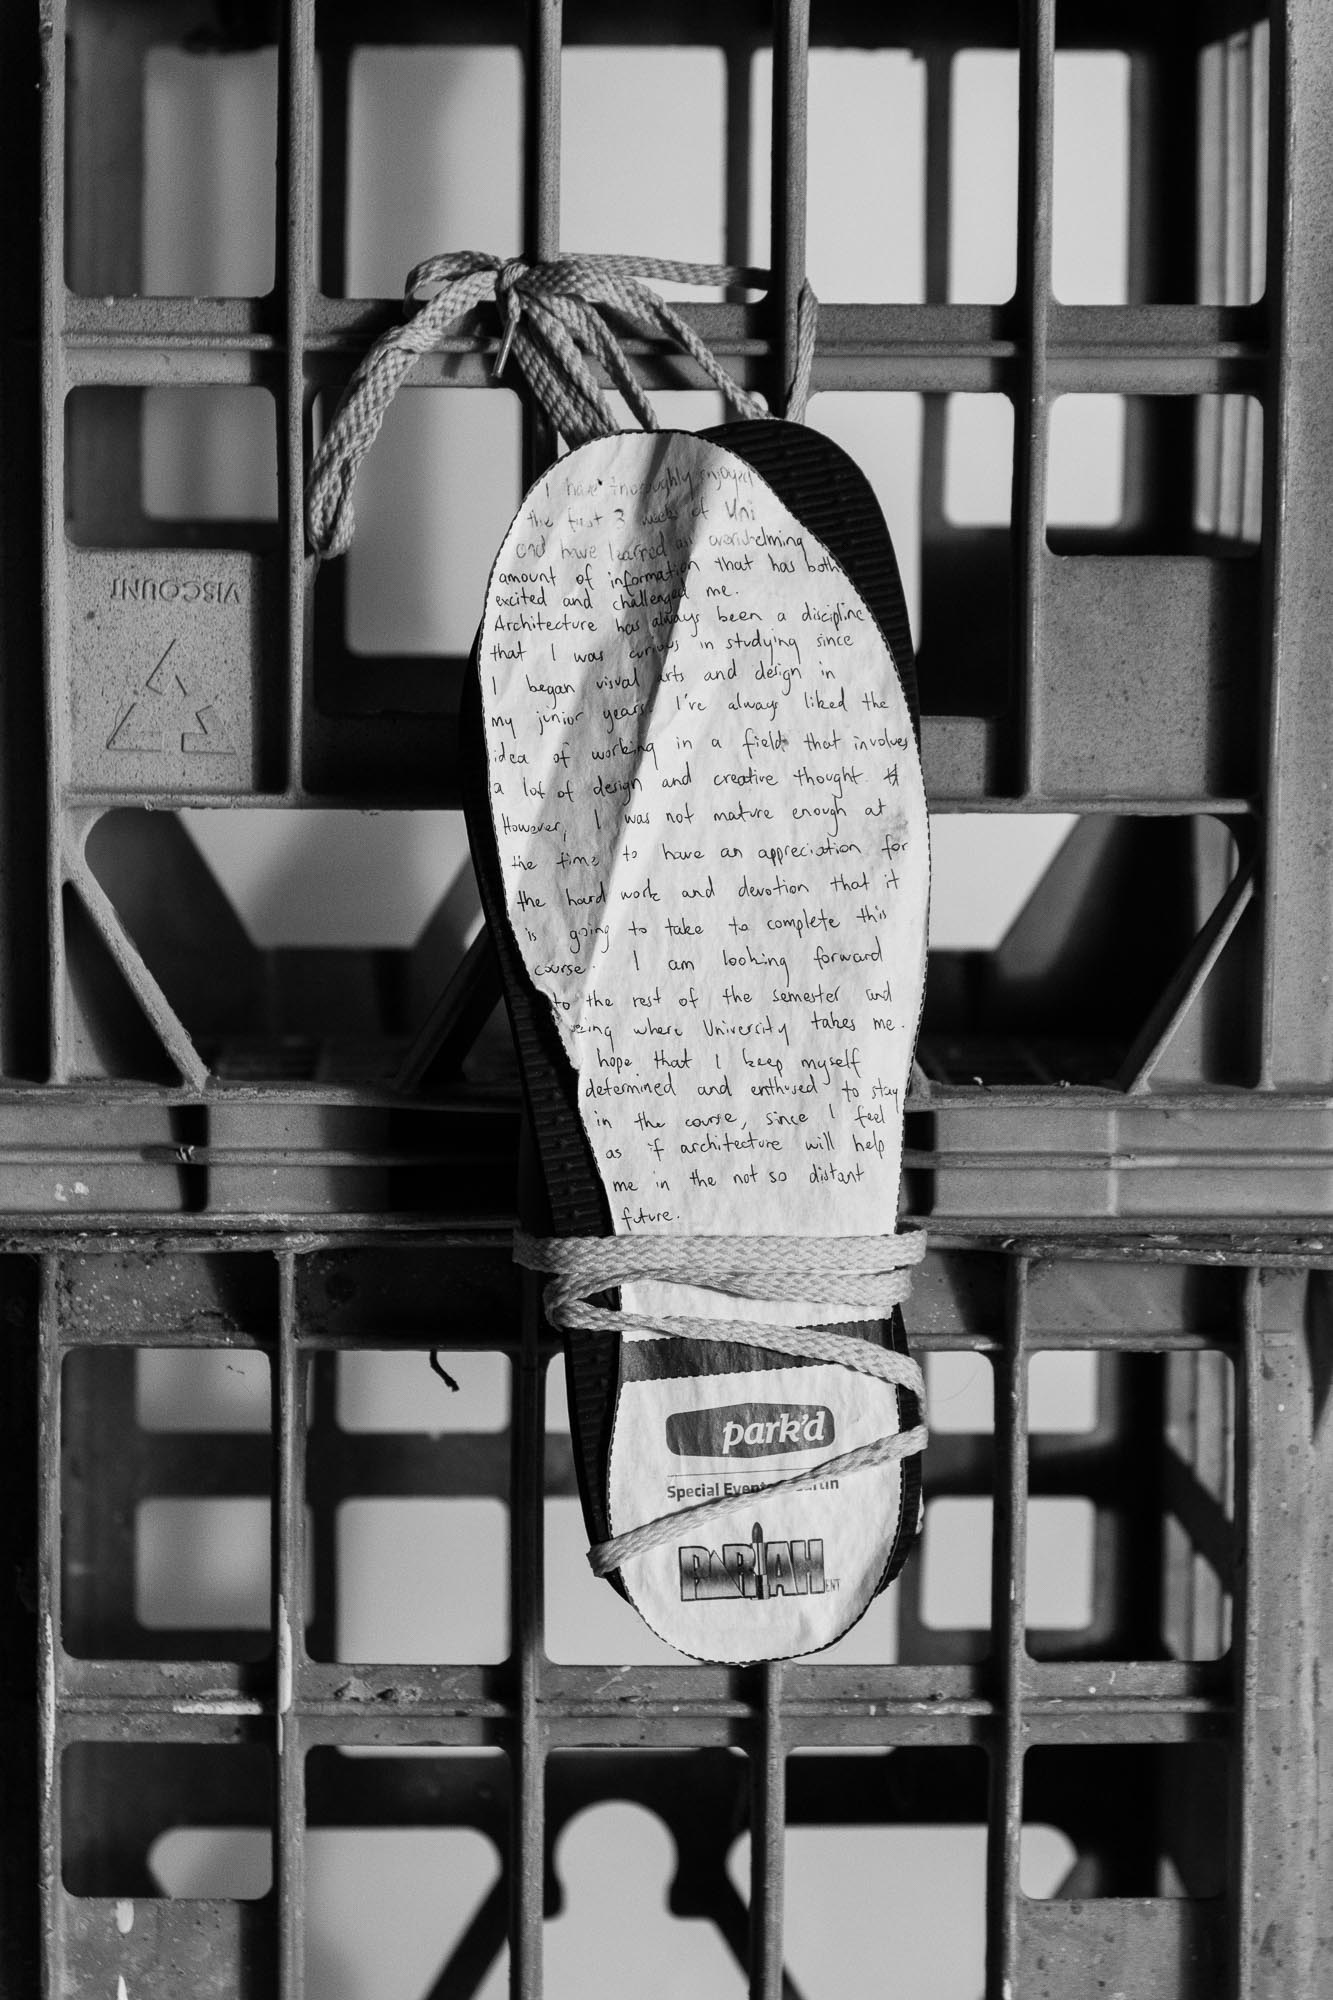 I have thoroughly enjoyed
the first 3 weeks of Uni
and have learned an overwhelming
amount of information that has both
excited and challenged me.
Architecture has always been a discipline
that I was curious in studying since
I began visual arts and design in
my junior years. I've always liked the
idea of working in a field that involves
a lot of design and creative thought
However, I was not mature enough at
the time to have an appreciation for
the hard work and devotion that it
is going to take to complete this
course. I am looking forward
to the rest of the semester and
where University takes me.
hope that I keep myself
determined and enthused to stay
in the course, since I feel
as if architecture will help
me in the not so distant
future.
park'd
Special Events
PARIAH
VISCOUNT